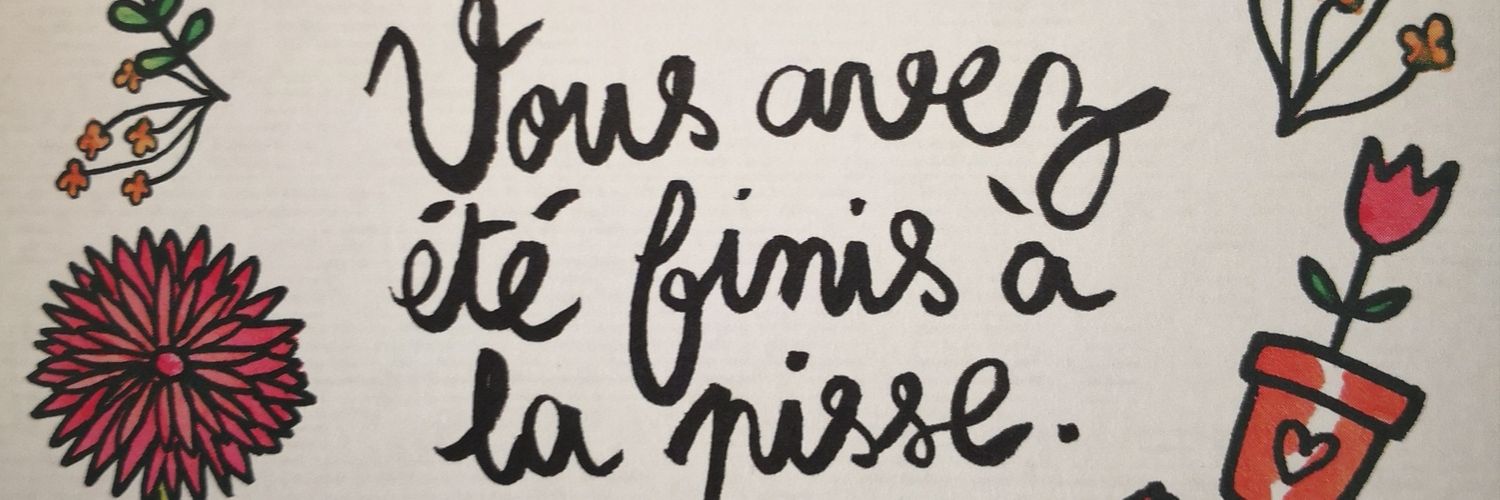 Vous avez
été finis à
la pisse.